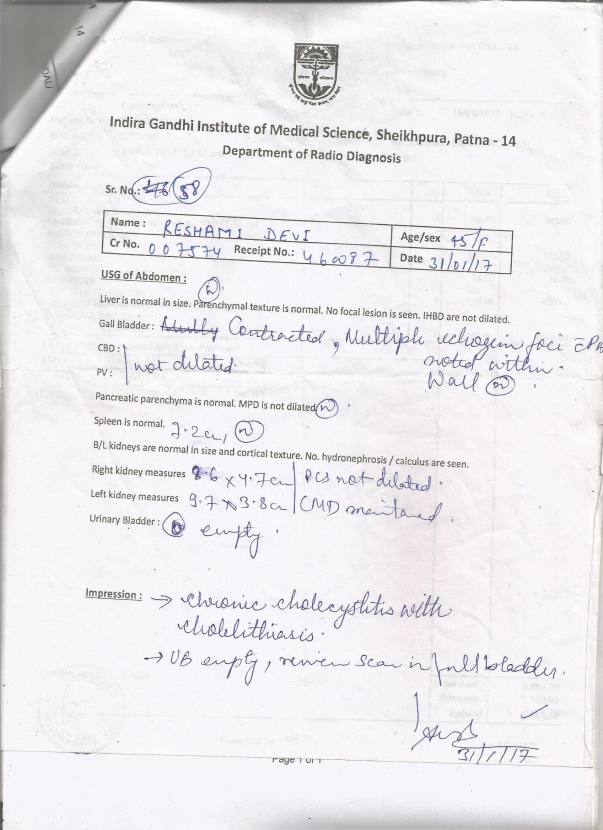 Indira Gandhi Institute of Medical Science, Sheikhpura, Patna - 14
Department of Radio Diagnosis
Sr. No.: 58
Name : RESHAMI DEVI Age/sex 45/F
Cr No. 007574 Receipt No.: 460087 Date 31/01/17
USG of Abdomen :
Liver is normal in size. Parenchymal texture is normal. No focal lesion is seen. IHBD are not dilated.
Gall Bladder : Contracted, Multiple echogenic foci
noted within.
CBD :
PV : not dilated.
Wall (N).
Pancreatic parenchyma is normal. MPD is not dilated (N).
Spleen is normal. 7.2cm, (N)
B/L kidneys are normal in size and cortical texture. No. hydronephrosis / calculus are seen.
Right kidney measures 8.6 x 4.7cm PCS not dilated.
Left kidney measures 9.7 x 3.8cm CMD maintained.
Urinary Bladder : empty.
Impression : → chronic cholecystitis with
cholelithiasis.
→ UB empty, review scan in full bladder.
31/1/17
Page 1 of 1